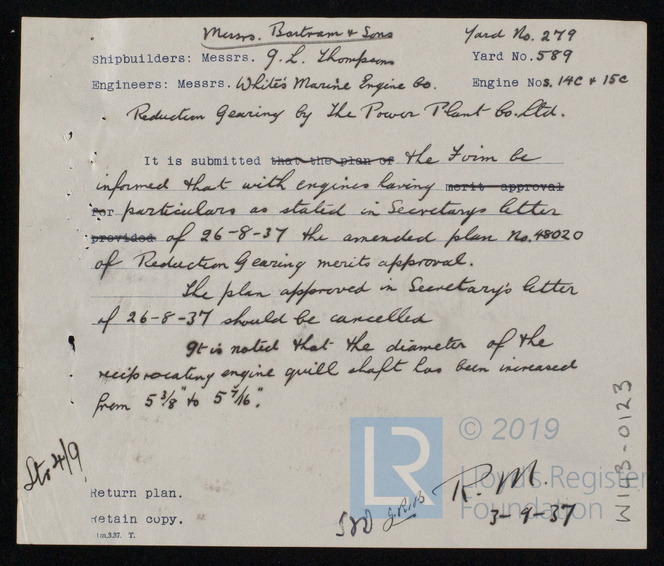 Messrs. Bartram & Sons Yard No. 279
Shipbuilders: Messrs. J. L. Thompsons Yard No. 589
Engineers: Messrs. White's Marine Engine Co. Engine Nos. 14C & 15C
Reduction Gearing by The Power Plant Co. Ltd.
It is submitted that the plan of the Firm be
informed that with engines having merit approval
for particulars as stated in Secretary's letter
provided of 26-8-37 the amended plan No. 48020
of Reduction Gearing merits approval.
The plan approved in Secretary's letter
of 26-8-37 should be cancelled
It is noted that the diameter of the
reciprocating engine quill shaft has been increased
from 5 3/8" to 5 7/16".
4/9
Return plan.
Retain copy.
R. M.
3-9-37
LR
© 2019
Lloyd's Register
Foundation
W143-0123